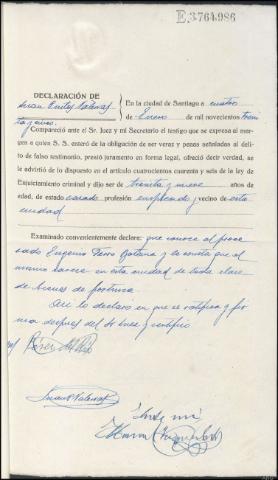 E.3764986
DECLARACIÓN DE
Juan Benites Valenas
En la ciudad de Santiago a cuatro
de Enero de mil novecientos trein
ta y nueve.
Compareció ante el Sr. Juez y mi Secretario el testigo que se expresa al mar-
gen a quien S. S. enteró de la obligación de ser veraz y penas señaladas al delito
de falso testimonio, prestó juramento en forma legal, ofreció decir verdad, se
le advirtió de lo dispuesto en el artículo cuatrocientos cuarenta y seis de la ley de
Enjuiciamiento criminal y dijo ser de treinta y nueve años de
edad, de estado casado profesión empleado y vecino de esta
ciudad
Examinado convenientemente declara: que conoce al proce
sado Eugenio y le consta que el
mismo carece en esta ciudad de toda clase
de bienes de fortuna.
Así lo declaró en que se ratifica y fir
ma después del Sr Juez y certifico
Ante mí